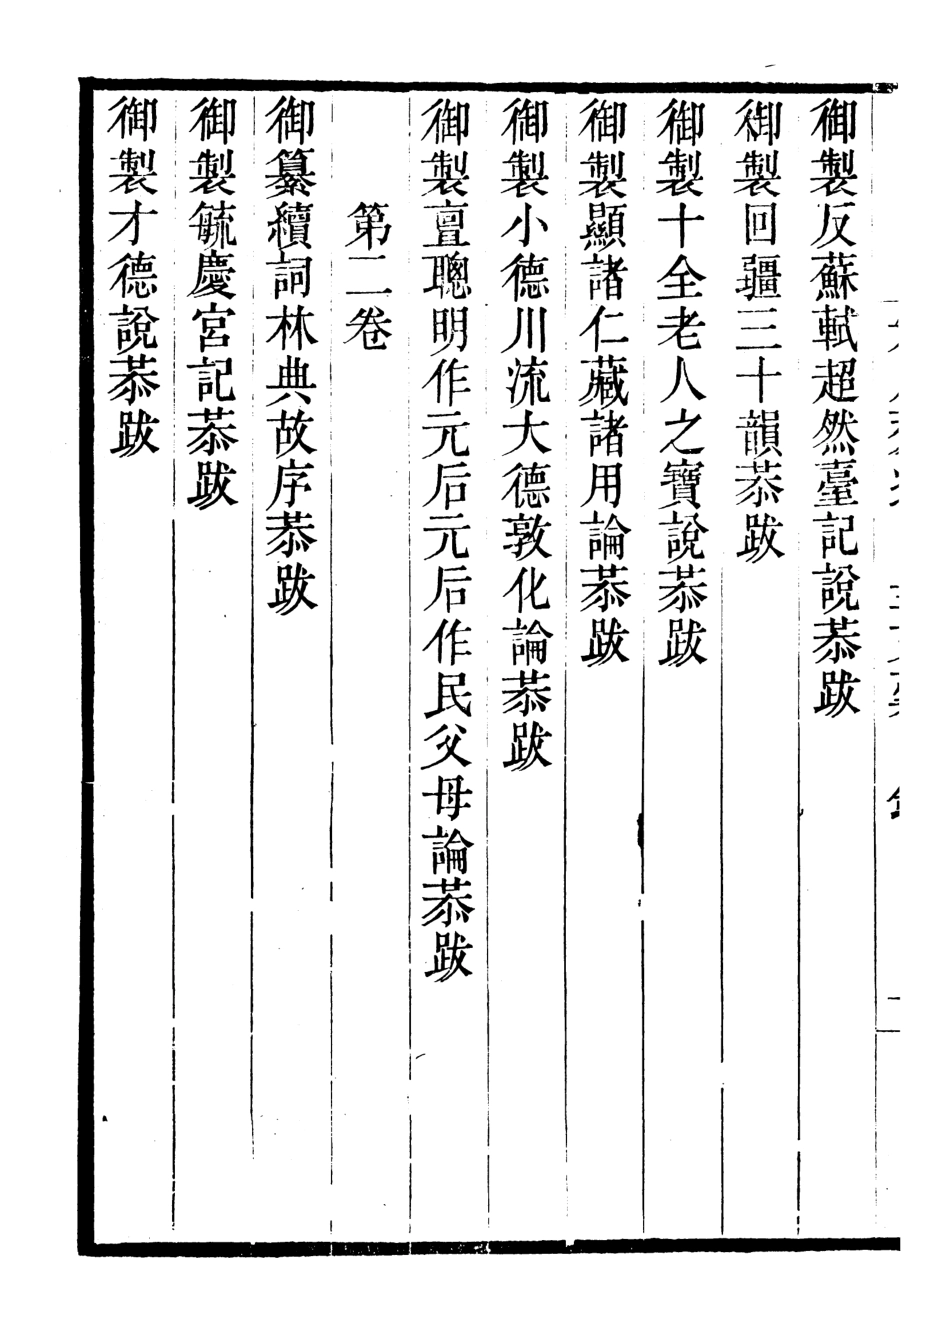 御製反蘇軾超然臺記說恭跋
御製回疆三十韻恭跋
御製十全老人之寶說恭跋
御製顯諸仁藏諸用論恭跋
御製小德川流大德敦化論恭跋
御製亶聰明作元后元后作民父母論恭跋
第二卷
御纂續詞林典故序恭跋
御製毓慶宮記恭跋
御製才德說恭跋